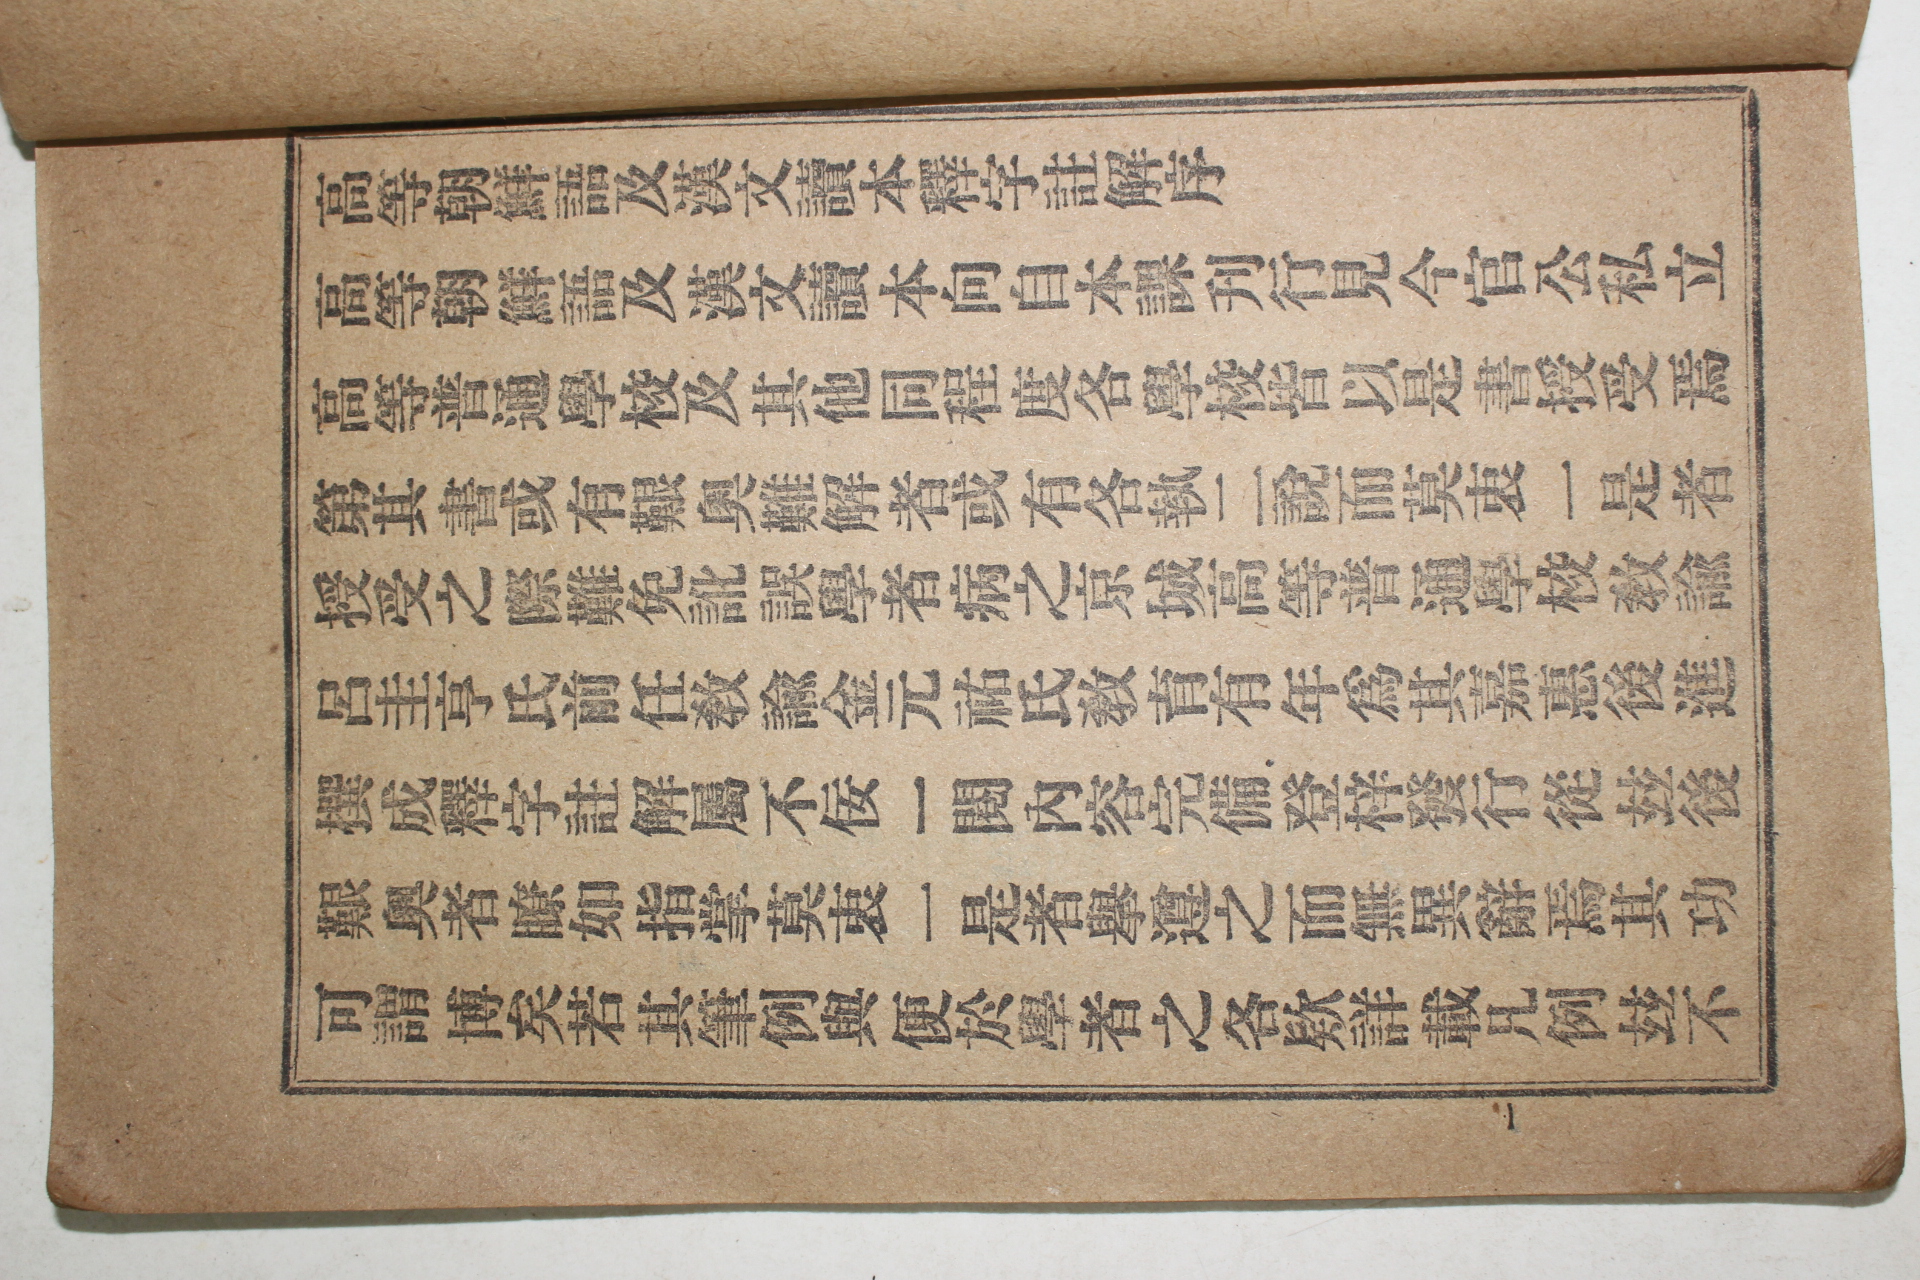 高等朝鮮語及漢文讀本釋字註解序
高等朝鮮語及漢文讀本向自本課刊行見今官公私立
高等普通學校及其他同程度各學校皆以是書授受焉
第其書或有艱奧難解者或有各執一說而莫衷一是者
授受之際難免訛誤學者病之京城高等普通學校敎諭
呂圭亨氏前任敎諭金元祐氏敎育有年爲其嘉惠後進
撰成釋字註解屬不佞一閱內容完備登梓發行從玆後
艱奧者瞭如指掌莫衷一是者擧遵之而無異辭焉其功
可謂博矣若其筆例與便於學者之各款詳載凡例玆不
一